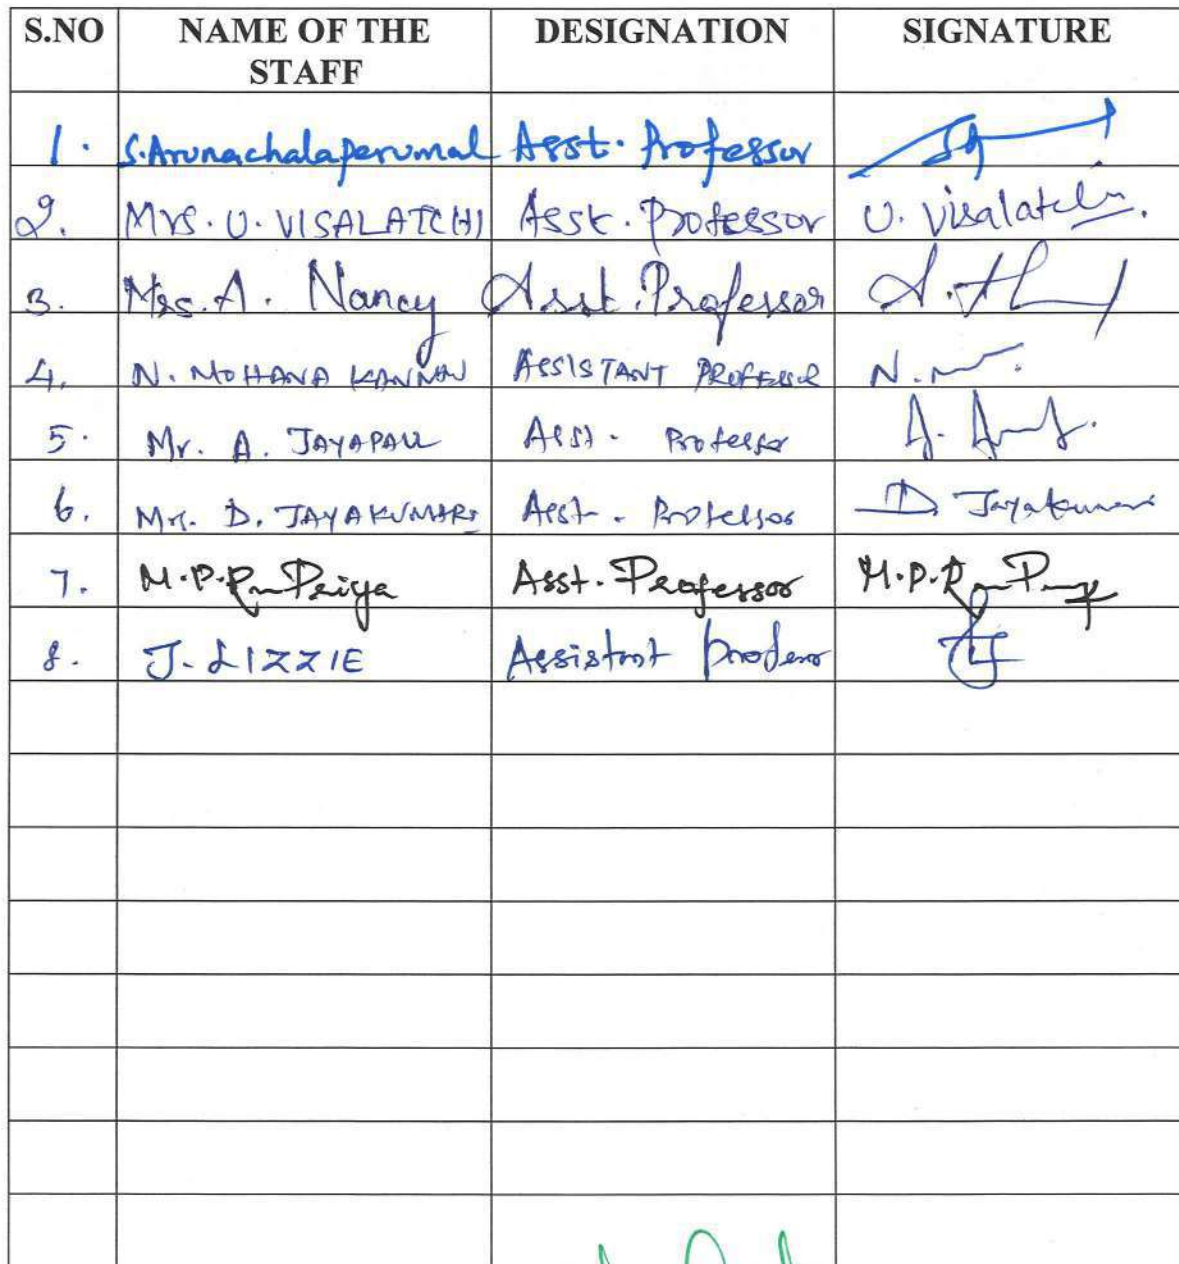 S.NO NAME OF THE STAFF DESIGNATION SIGNATURE
1. S.Arunachalaperumal Asst. Professor
2. Mrs. U. VISALATCHI Asst. Professor U. Visalatchi
3. Mrs. A. Nancy Asst. Professor
4. N. MOHANA KANNAN ASSISTANT PROFESSOR
5. Mr. A. JAYAPAUL Asst. Professor
6. Mrs. D. JAYAKUMARI Asst. Professor D. Jayakumari
7. M.P.R Priya Asst. Professor M.P.R
8. J. LIZZIE Assistant Professor